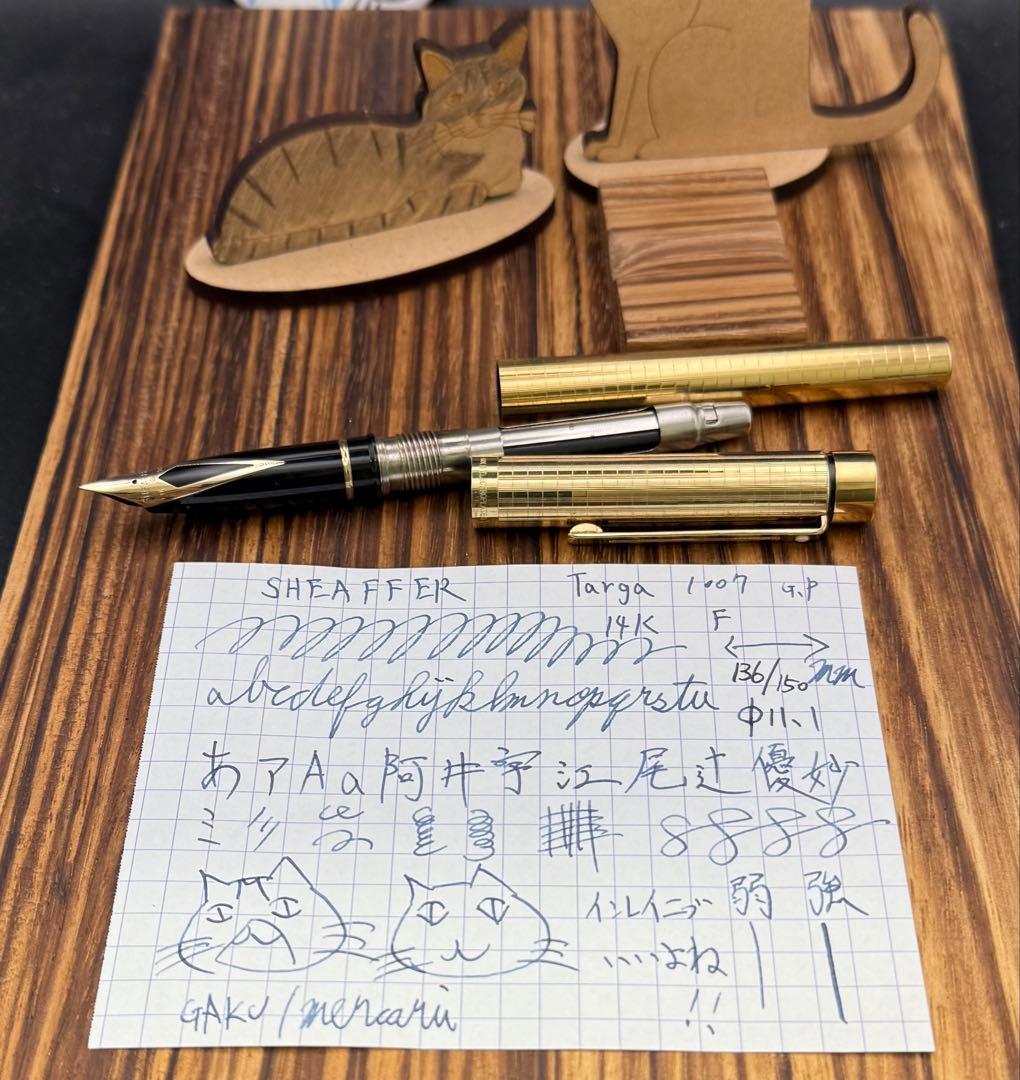 SHEAFFER Targa 1007 G.P
14K F
136/150 mm
abcdefghijklmnopqrstu
φ11.1
あアAa阿井宇江尾辻優妙
ミ ツ
インレイニブ 弱 強
いいよね
!!
GAKU/mercari